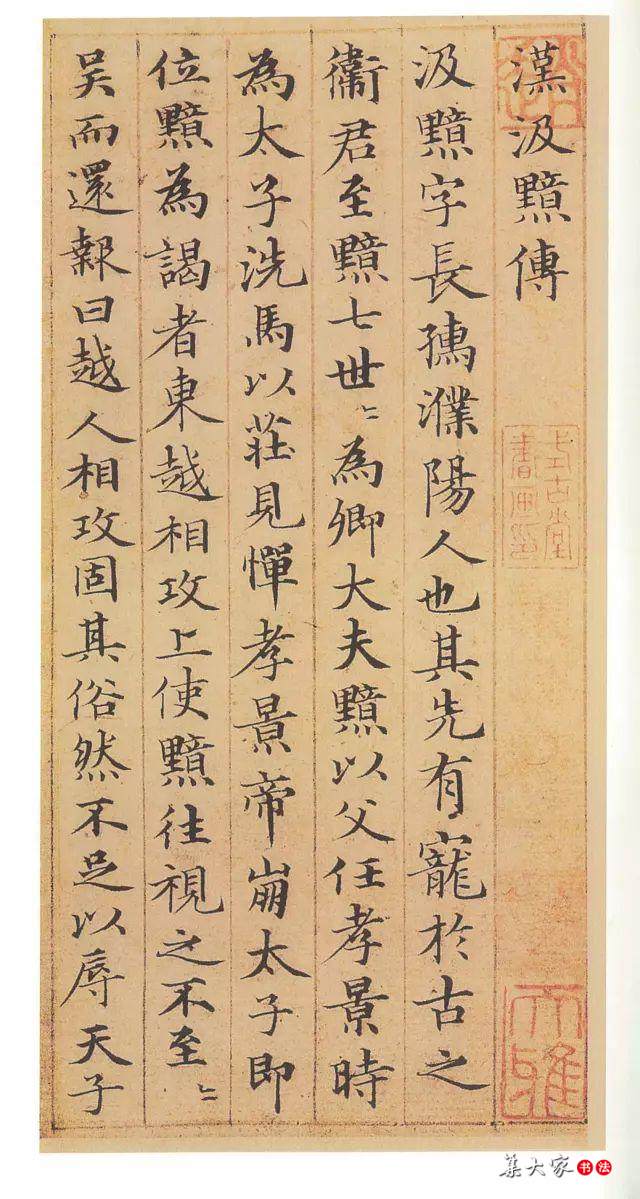 漢汲黯傳
汲黯字長孺濮陽人也其先有寵於古之
衞君至黯七世〻為卿大夫黯以父任孝景時
為太子洗馬以莊見憚孝景帝崩太子即
位黯為謁者東越相攻上使黯往視之不至〻
吴而還報曰越人相攻固其俗然不足以辱天子
大雅
集大家书法